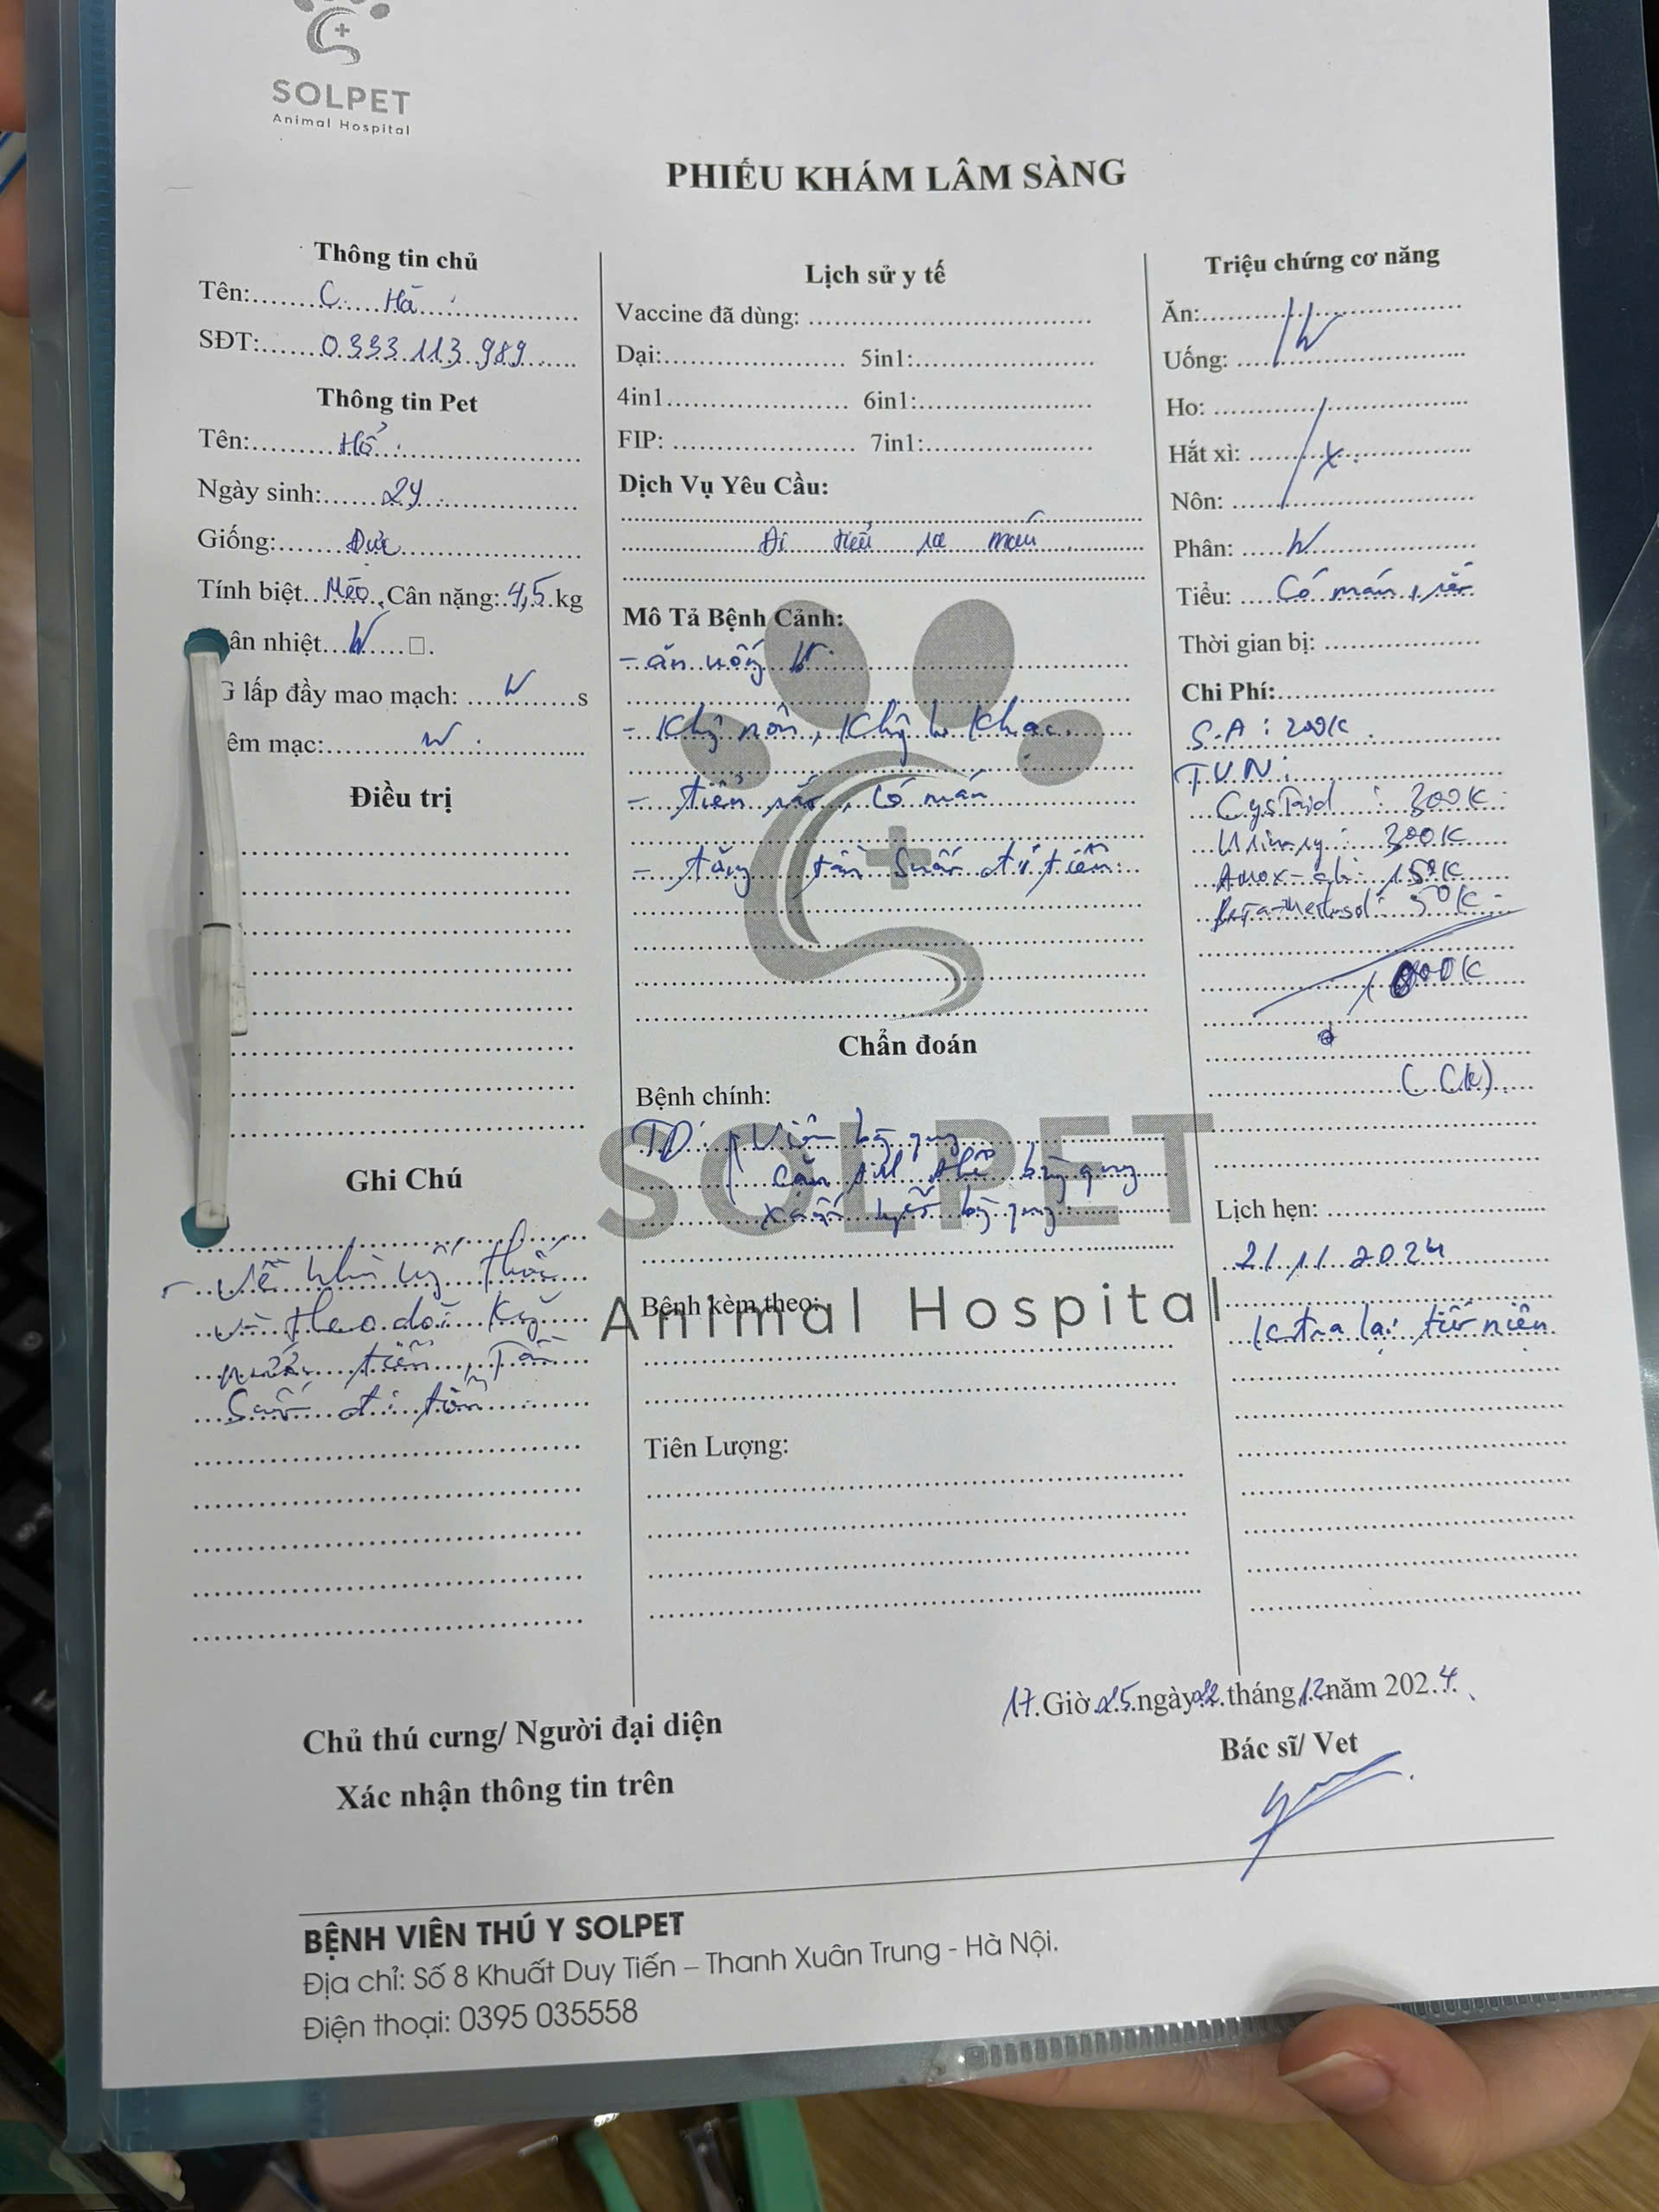 SOLPET
Animal Hospital
PHIẾU KHÁM LÂM SÀNG
Thông tin chủ
Tên:......C....Hà
SĐT:......0333.113.989
Thông tin Pet
Tên:......Hổ
Ngày sinh:......2y
Giống:......Đực
Tính biệt...Mèo...Cân nặng:.4,5.kg
ân nhiệt...W.....□.
G lấp đầy mao mạch: ......W......s
êm mạc:......W
Điều trị
Ghi Chú
- Về nhà uống thuốc
và theo dõi kỹ
nước tiểu, tần
suất đi tiểu
Lịch sử y tế
Vaccine đã dùng:
Dại:...... 5in1:
4in1...... 6in1:
FIP: ...... 7in1:
Dịch Vụ Yêu Cầu:
Đi tiểu ra máu
Mô Tả Bệnh Cảnh:
- ăn uống W
- Không nôn, Không ho khạc.
- tiểu rắt, có máu
- tăng tần suất đi tiểu
Chẩn đoán
Bệnh chính:
TD: Viêm bàng quang
Cặn tinh thể bàng quang
xuất huyết bàng quang
Bệnh kèm theo:
Tiên Lượng:
SOLPET
Animal Hospital
Triệu chứng cơ năng
Ăn:
Uống: W
Ho:
Hắt xì: X
Nôn:
Phân: W
Tiểu: Có máu, rắt
Thời gian bị:
Chi Phí:
S.A : 200K
T.V.N :
Cystaid : 300K
Urinary : 300K
Amox- : 150K
50K
1000K
(CK)
Lịch hẹn:
21.11.2024
tra lại tiết niệu
17.Giờ.25.ngày.22.tháng.12năm 202.4
Chủ thú cưng/ Người đại diện
Xác nhận thông tin trên
Bác sĩ/ Vet
BỆNH VIÊN THÚ Y SOLPET
Địa chỉ: Số 8 Khuất Duy Tiến – Thanh Xuân Trung - Hà Nội.
Điện thoại: 0395 035558